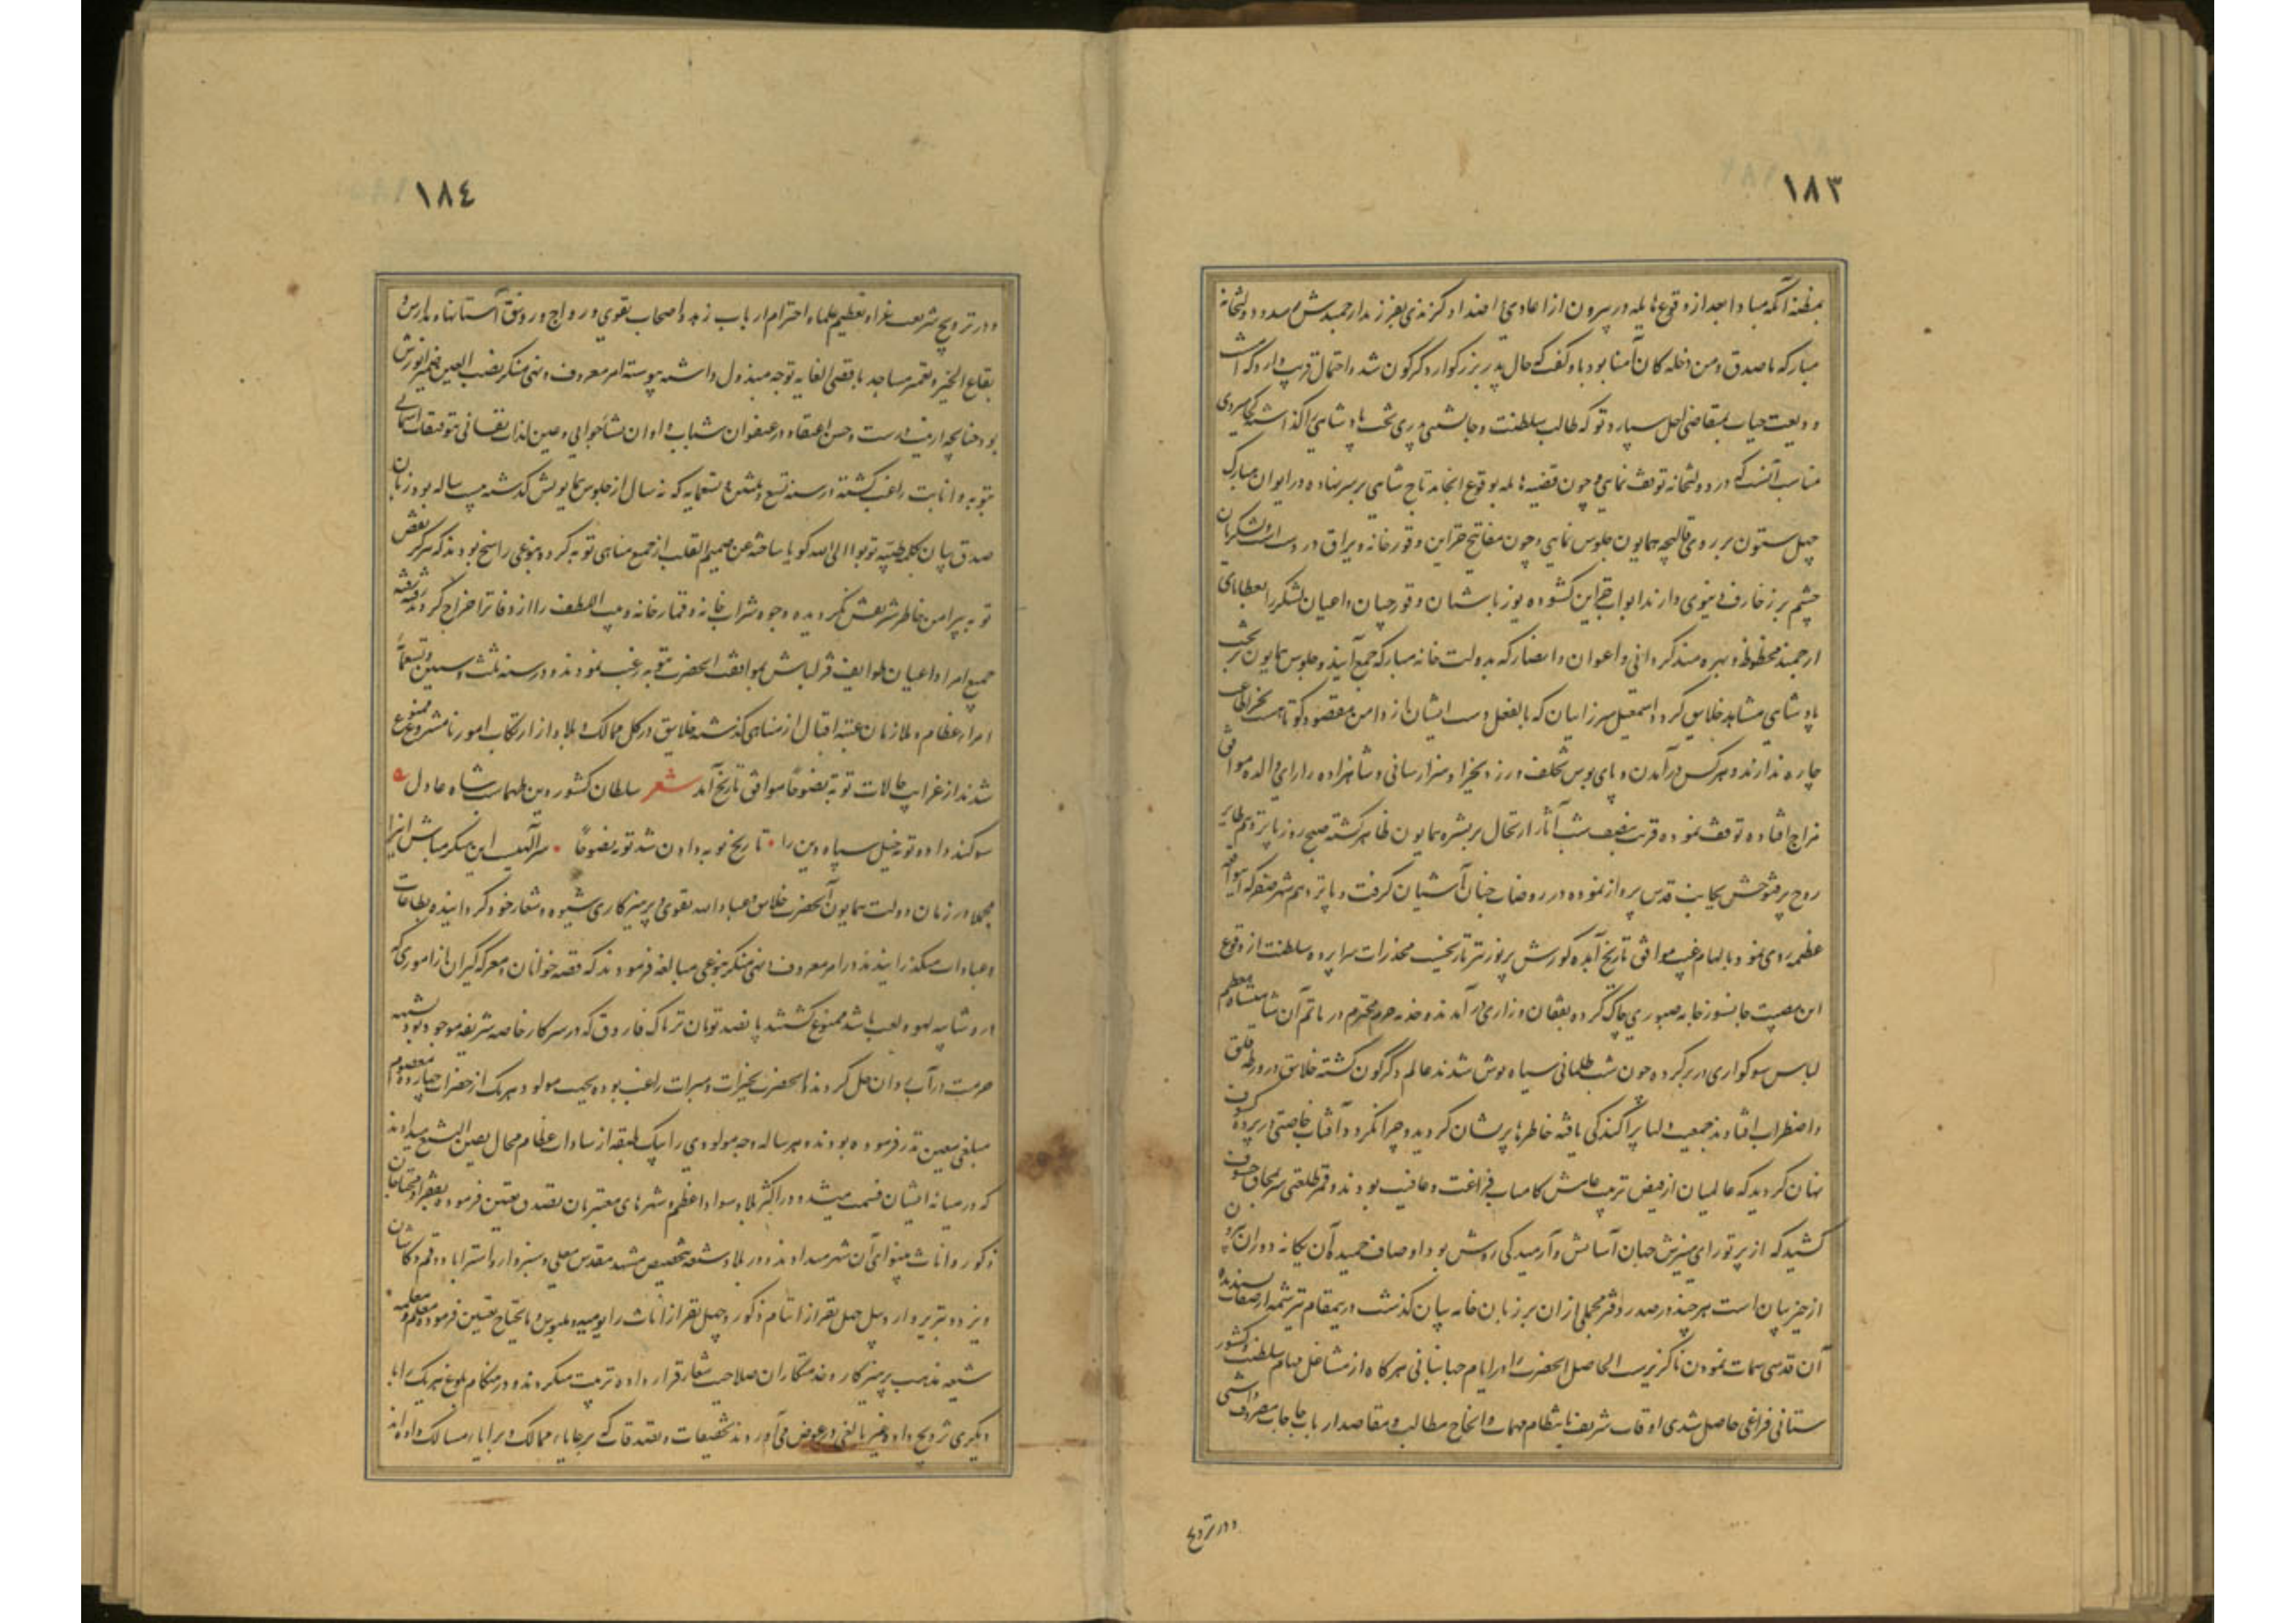 ١٨٣
بمظنه آنکه مبادا بعد از وقوع هایله در بیرون از اعادی و اضداد گزندی بفرزند ارجمندش رسد در دولتخانه
مبارکه ما صدق و من دخله کان آمنا بود باو گفت که حال پدر بزرگوار دگرگون شده احتمال قریب دارد که
ودیعت حیات بمتقاضی اجل سپارد تو که طالب سلطنت و جانشینی پدری تخت پادشاهی را گذاشته کجا میروی
مناسب آنست که در دولتخانه توقف نمایی و چون قضیه هایله بوقوع انجامد تاج شاهی بر سر نهاده در ایوان مبارک
چهل ستون بر روی قالیچه همایون جلوس نمایی و چون مفاتیح خزاین و قورخانه و یراق در دست است و لشکریان
چشم بر زخارف دنیوی دارند ابواب خزاین گشوده یوزباشیان و قورچیان و اعیان لشکر را بعطایای
ارجمند محظوظ و بهره مند گردانی و اعوان و انصار که بدولت خانه مبارکه جمع آیند و جلوس همایون بر تخت
پادشاهی مشاهد خلایق گردد اسمعیل میرزاییان که بالفعل دست ایشان از دامن مقصود کوتاهست بجز اطاعت
چاره ندارند و هر کس در آمدن و پای بوس تخلف ورزد بجزا و سزا رسانی و شاهزاده را رای والده موافق
مزاج افتاده توقف نمود قریب بنصف شب آثار ارتحال بر بشره همایون ظاهر گشته صبح روز پانزدهم طایر
روح پرفتوحش بجانب قدس پرواز نموده در روضات جنان آشیان گرفت و پانزدهم شهر صفر که این واقعه
عظمی روی نمود بالهام غیب موافق تاریخ آمده گورش پرنور نیز تاریخست مخدرات سرا پرده سلطنت از وقوع
این مصیبت جانسوز جامه صبوری چاک کرده بفغان و زاری در آمدند و خدمه حرم محترم در ماتم آن شاهنشاه معظم
لباس سوگواری در بر کرده چون شب ظلمانی سیاه پوش شدند عالم دگرگون گشته خلایق در ورطه قلق
و اضطراب افتادند جمعیت دلها پراکندگی یافته خاطرها پریشان گردید و چرا نگردد آفتاب خاصیتی در پرده کسوف
نهان گردید که عالمیان از فیض تربیت عامش کامیاب فراغت و عافیت بودند و قمر طلعتی سر بمحاق خسوف
کشید که از پرتو رای منیرش جهان آسایش و آرمیدگی روشن بود اوصاف حمیده آن یگانه دوران بیرون
از حیز بیان است هر چند در صدر دفتر مجملی از آن بر زبان خامه بیان گذشت درینمقام نیز شمه از صفات پسندیده
آن قدسی سمات نمودن ناگزیرست الحاصل آنحضرت را در ایام جهانبانی هر گاه از مشاغل مهام سلطنت و کشور
ستانی فراغی حاصل شدی اوقات شریف بانتظام مهمات و انجاح مطالب و مقاصد ارباب حاجات مصروف داشتی
و در ترویج
١٨٤
و در ترویج شریعت غرا و تعظیم علما و احترام ارباب زهد و اصحاب تقوی و رواج و رونق آستانها و مدارس و
بقاع الخیر و تعمیر مساجد باقصی الغایه توجه مبذول داشته پیوسته امر معروف و نهی منکر نصب العین ضمیر انورش
بود چنانچه از نیت درست و حسن اعتقاد در عنفوان شباب و اوان نشأ جوانی و عین لذات نفسانی بتوفیقات آسمانی
بتوبه و انابت راغب گشته در سنه تسع و ثلثین و تسعمایه که نه سال از جلوس همایونش گذشته بیست ساله بود زبان
صدق بیان بکلمه طیبه توبوا الی الله گویا ساخته عن صمیم القلب از جمیع مناهی توبه کرده بنوعی راسخ بودند که هرگز نقض
توبه پیرامن خاطر شریفش نگردیده وجوه شراب خانه و قمارخانه و بیت اللطف را از دفاتر اخراج کردند رفته رفته
جمیع امرا و اعیان طوایف قزلباش بموافقت آنحضرت بتوبه رغبت نمودند و در سنه ثلث و ستین و تسعمایه
امراء عظام و ملازمان عتبه اقبال از مناهی گذشته خلایق در کل ممالک و بلاد از ارتکاب امور نامشروع ممنوع
شدند از غرایب حالات توبه نصوحا موافق تاریخ آمد شعر سلطان کشور دین طهماسب شاه عادل
سوگند داد و توبه خیل سپاه دین را تاریخ توبه دادن شد توبه نصوحا سر آلهیست این منکر مباش این را
مجملا در زمان دولت همایون آنحضرت خلایق و عباد الله تقوی و پرهیزکاری شیوه و شعار خود گردانیده بطاعات
و عبادات میگذرانیدند و در امر معروف و نهی منکر بنوعی مبالغه فرمودند که قصه خوانان و معرکه گیران از اموری که
در او شایبه لهو و لعب باشد ممنوع گشتند پانصد تومان تریاک فاروق که در سرکار خاصه شریفه موجود بود بشبهه
حرمت در آب روان حل کردند آنحضرت بخیرات و مبرات راغب بوده بجهت مولود هر یک از حضرات چهارده معصوم
مبلغی معین نذر فرموده بودند و هر ساله وجه مولودی را بیک طبقه از سادات عظام محال یقین التشیع میدادند
که در میانه ایشان قسمت میشد و در اکثر بلاد و سواد اعظم و شهرهای معتبر نان بتصدق تعیین فرموده بفقرا و محتاجان
ذکور و اناث بینوای آن شهر میدادند و در بلاد شیعه بتخصیص مشهد مقدس معلی و سبزوار و استراباد و قم و کاشان
و یزد و تبریز و اردبیل چهل نفر از ایتام ذکور و چهل نفر از اناث را یومیه و ملبوس و مایحتاج تعیین فرموده معلم و معلمه
شیعه مذهب پرهیزکار و خدمتکاران صلاحیت شعار قرار داده تربیت میکردند و در هنگام بلوغ هر یک را با
دیگری تزویج داده غیر بالغی در عوض می آوردند تخفیفات و تصدقات که برعایاء ممالک و برایاء مسالک داده اند